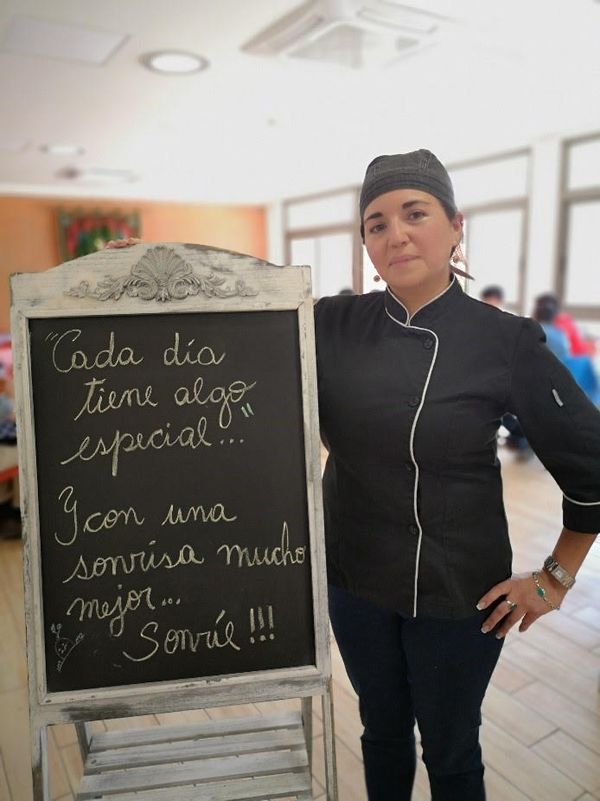 "Cada día
tiene algo
especial..."
Y con una
sonrisa mucho
mejor...
Sonríe!!!